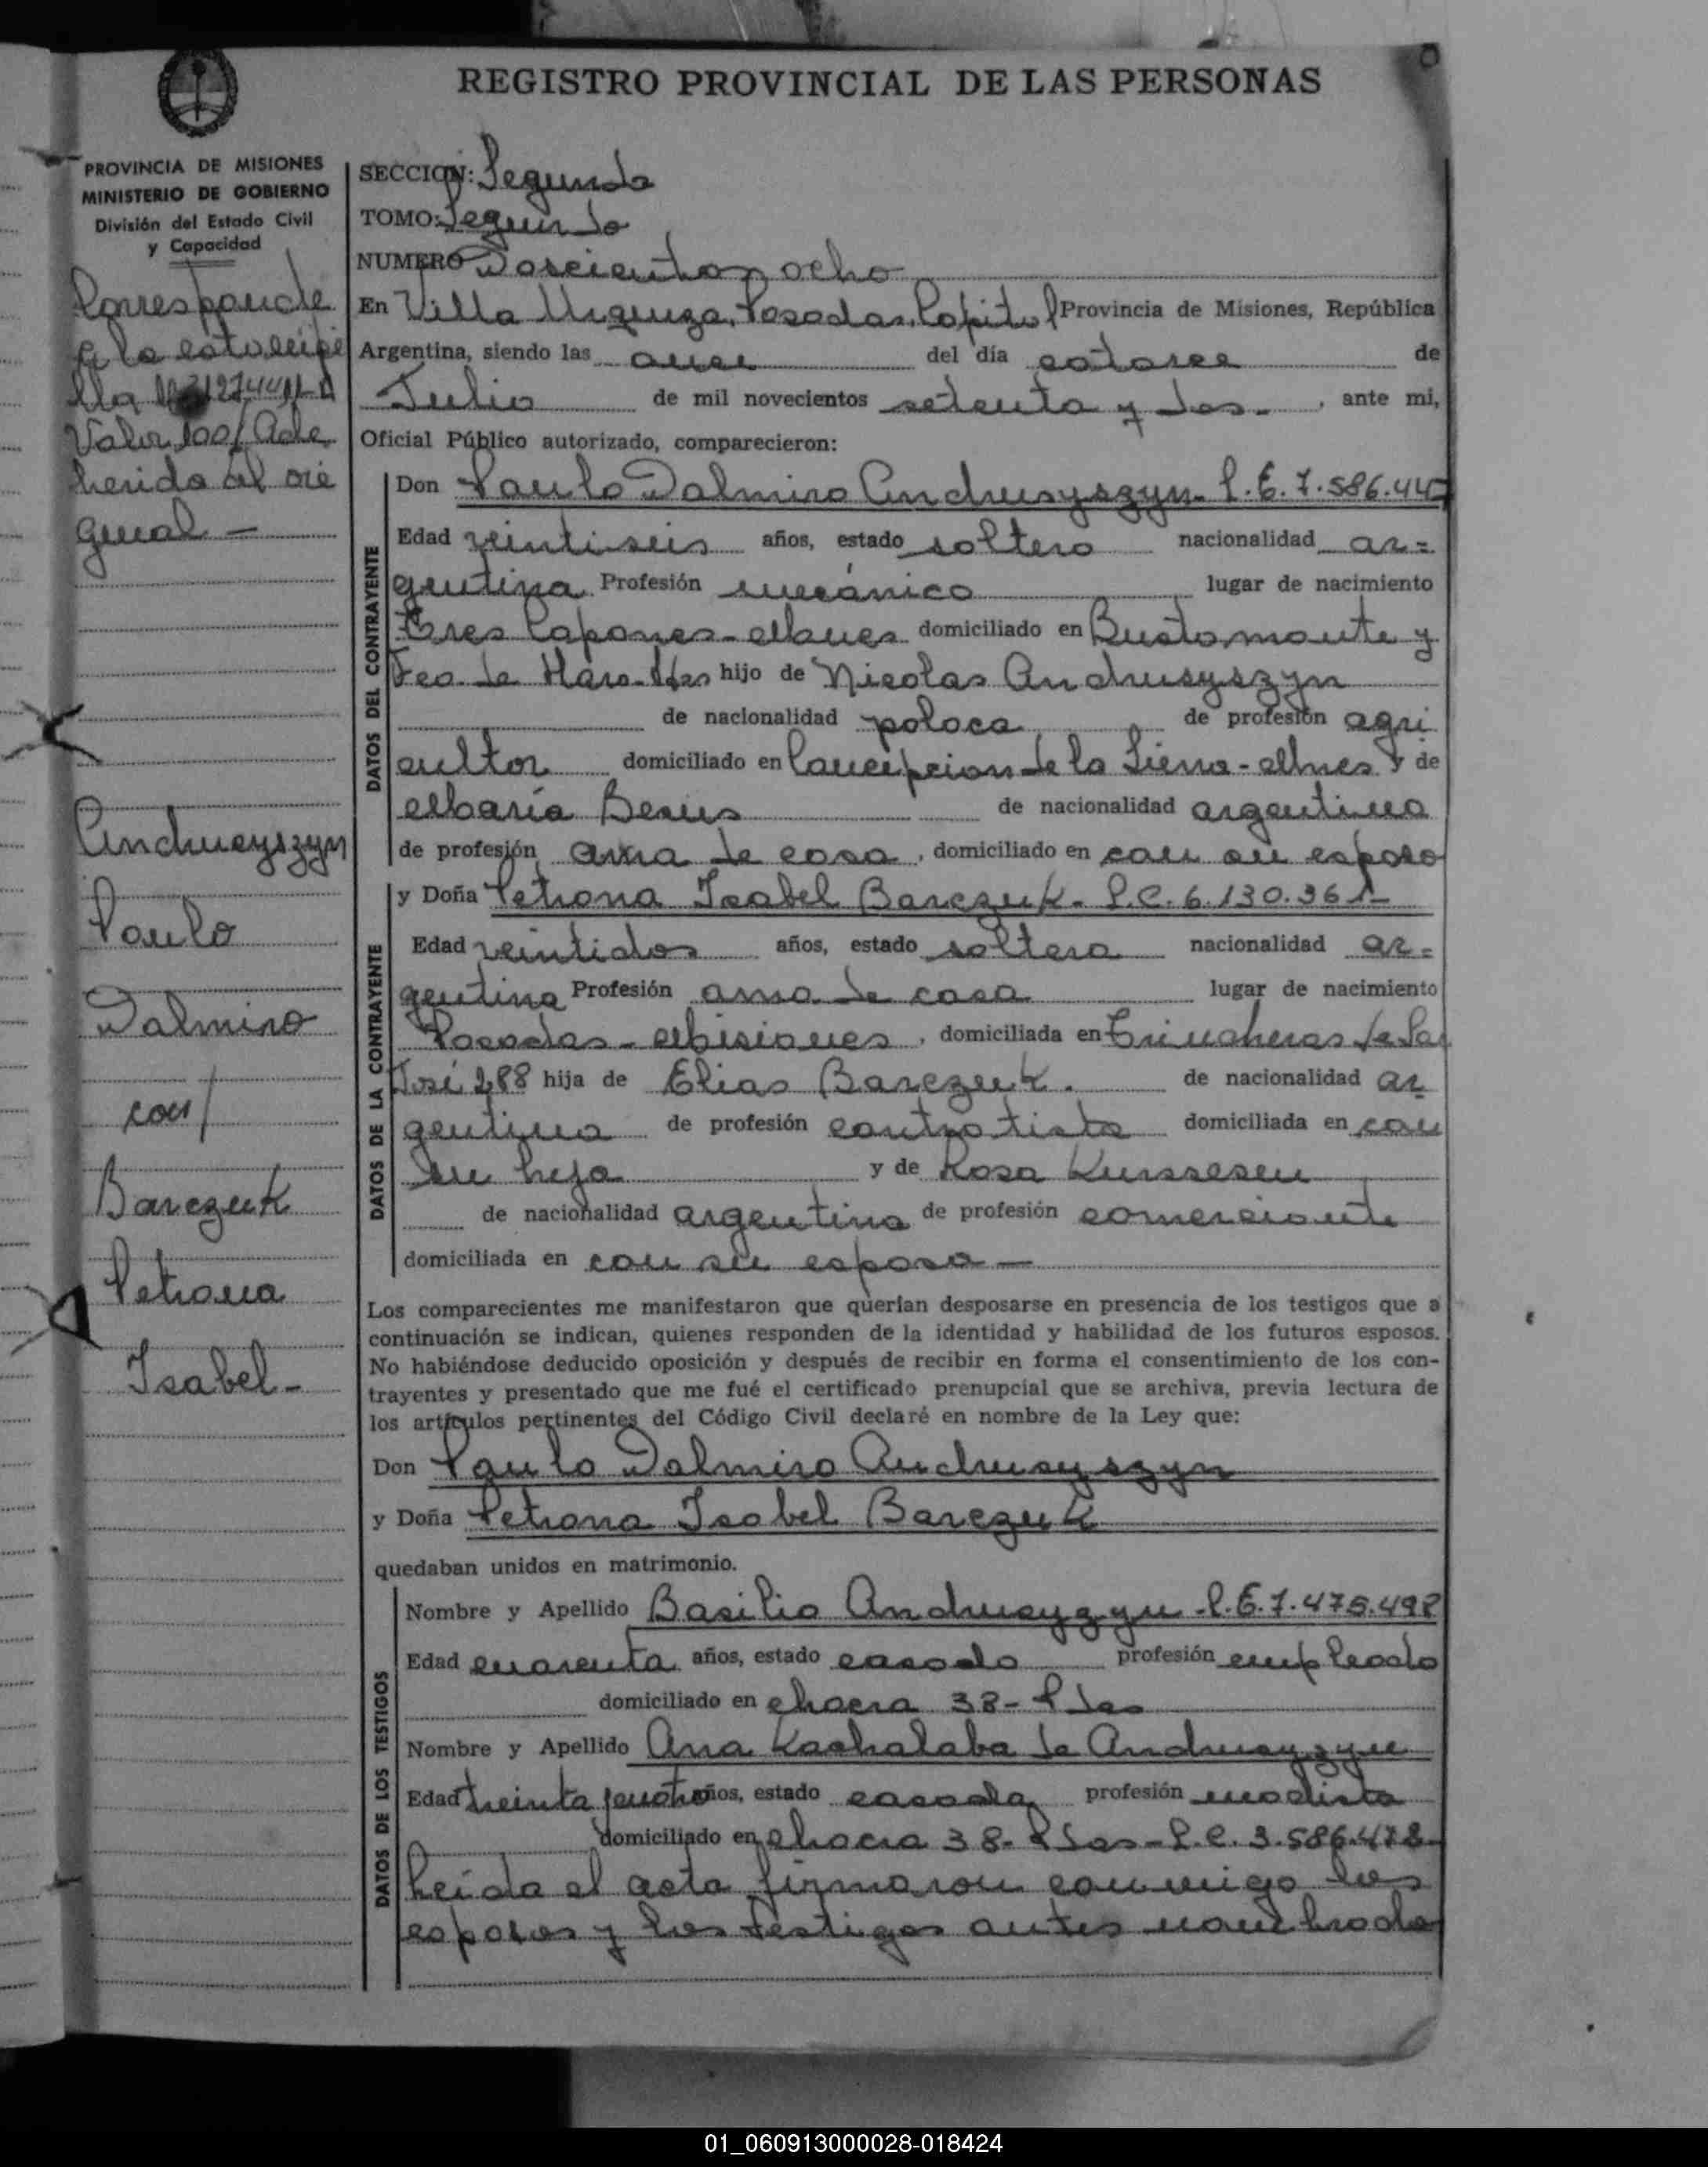 REGISTRO PROVINCIAL DE LAS PERSONAS
PROVINCIA DE MISIONES
MINISTERIO DE GOBIERNO
División del Estado Civil
y Capacidad
Corresponde
a la estampi
lla
Valor 100/ Adhe
herida al ori
ginal —
Andrusyszyn
Paulo
Dalmiro
con/
Barczuk
Petrona
Isabel -
SECCION: Segunda
TOMO: Segundo
NUMERO Doscientos ocho
En Villa Urquiza, Posadas, Capital Provincia de Misiones, República
Argentina, siendo las once del día catorce de
Julio de mil novecientos setenta y dos.- , ante mi,
Oficial Público autorizado, comparecieron:
DATOS DEL CONTRAYENTE
Don Paulo Dalmiro Andrusyszyn - L.E. 7.586.447
Edad veintiseis años, estado soltero nacionalidad ar=
gentina Profesión mecánico lugar de nacimiento
Tres Capones - Mnes domiciliado en Bustamante y
Fco. de Haro - Pdas hijo de Nicolas Andrusyszyn
de nacionalidad polaca de profesión agri
cultor domiciliado en Concepcion de la Sierra - Mnes y de
Maria de nacionalidad argentina
de profesión ama de casa , domiciliado en con su esposo
DATOS DE LA CONTRAYENTE
y Doña Petrona Isabel Barczuk - L.C. 6.130.361-
Edad veintidos años, estado soltera nacionalidad ar=
gentina Profesión ama de casa lugar de nacimiento
Posadas - Misiones , domiciliada en Trincheras de San
José 288 hija de Elias Barczuk. de nacionalidad ar
gentina de profesión contratista domiciliada en con
su hija y de Rosa
de nacionalidad argentina de profesión comerciante
domiciliada en con su esposo —
Los comparecientes me manifestaron que querían desposarse en presencia de los testigos que a
continuación se indican, quienes responden de la identidad y habilidad de los futuros esposos.
No habiéndose deducido oposición y después de recibir en forma el consentimiento de los con-
trayentes y presentado que me fué el certificado prenupcial que se archiva, previa lectura de
los artículos pertinentes del Código Civil declaré en nombre de la Ley que:
Don Paulo Dalmiro Andrusyszyn
y Doña Petrona Isabel Barczuk
quedaban unidos en matrimonio.
DATOS DE LOS TESTIGOS
Nombre y Apellido Basilio Andrusyzyn - L.E. 7.475.498
Edad cuarenta años, estado casado profesión empleado
domiciliado en chacra 38 - Pdas
Nombre y Apellido Ana Kachalaba de Andrusyzyn
Edad treinta y cuatro años, estado casada profesión modista
domiciliado en chacra 38 - Pdas - L.C. 3.586.478-
Leida el acta firmaron conmigo los
esposos y los testigos antes nombrados
01_060913000028-018424